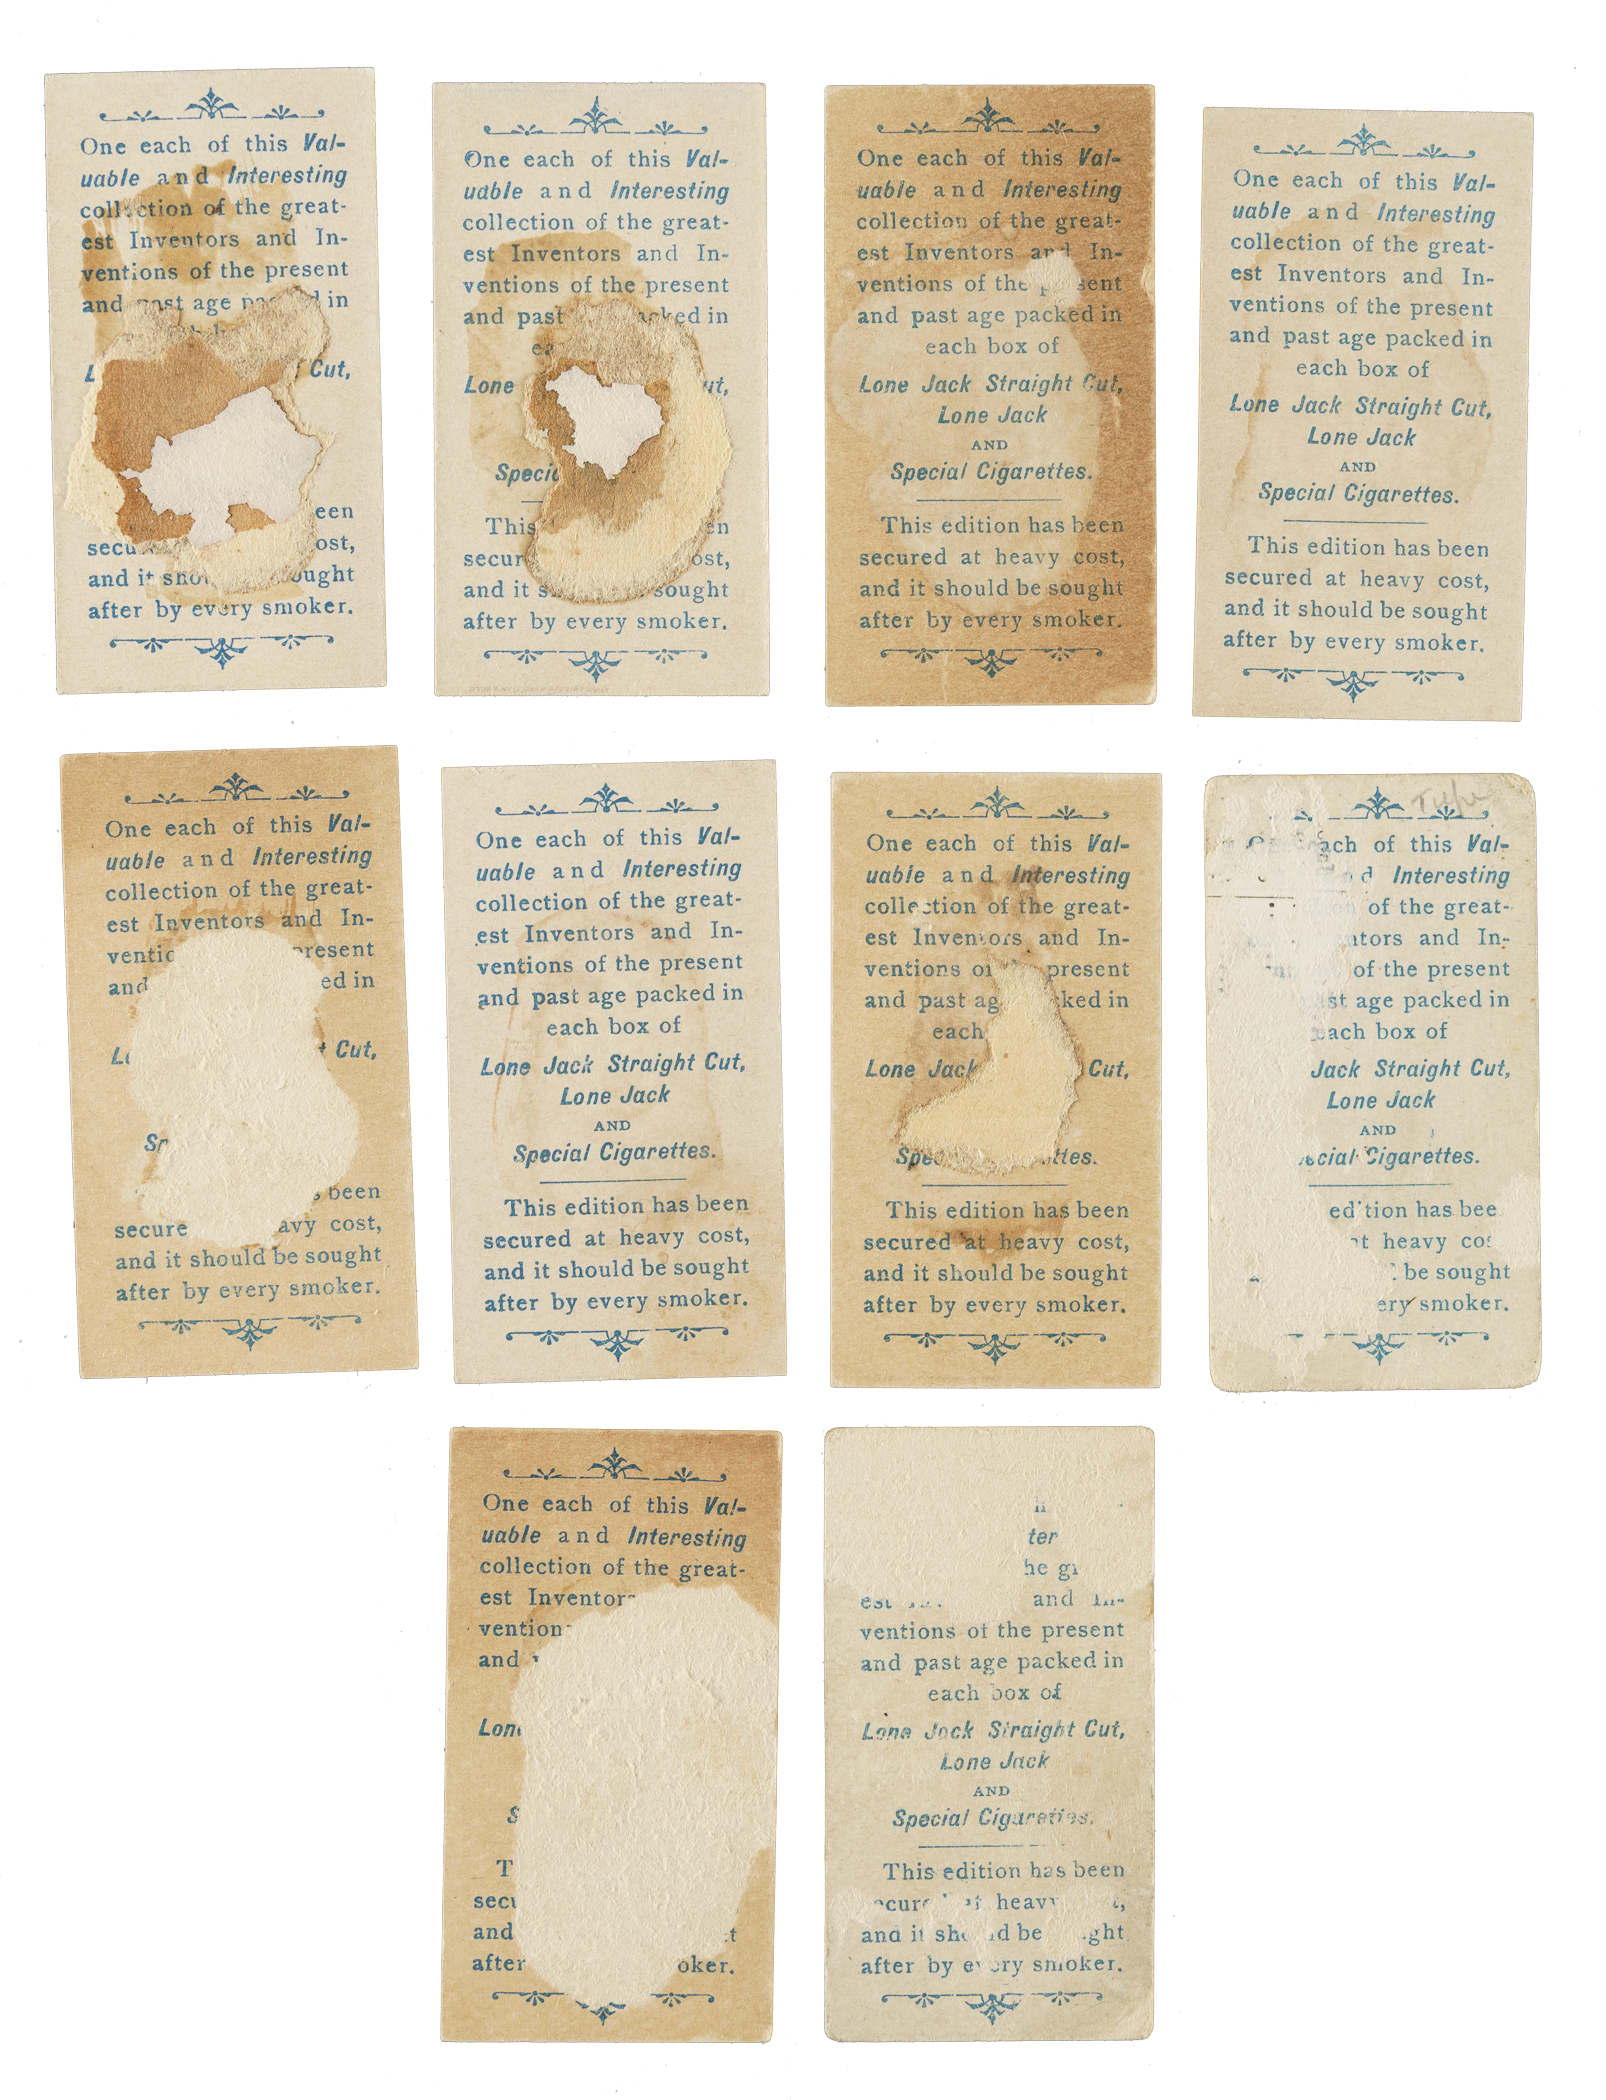 One each of this Val-
uable and Interesting
collection of the great-
est Inventors and In-
ventions of the present
and past age in
Cut,
and it
after by every smoker.
One each of this Val-
uable and Interesting
collection of the great-
est Inventors and In-
ventions of the present
and past in
Lone
This
and it
after by every smoker.
One each of this Val-
uable and Interesting
collection of the great-
est Inventors and In-
ventions of the
and past age packed in
each box of
Lone Jack Straight Cut,
Lone Jack
AND
Special Cigarettes.
This edition has been
secured at heavy cost,
and it should be sought
after by every smoker.
One each of this Val-
uable and Interesting
collection of the great-
est Inventors and In-
ventions of the present
and past age packed in
each box of
Lone Jack Straight Cut,
Lone Jack
AND
Special Cigarettes.
This edition has been
secured at heavy cost,
and it should be sought
after by every smoker.
One each of this Val-
uable and Interesting
collection of the great-
est Inventors and In-
present
and in
Cut,
been
cost,
and it should be sought
after by every smoker.
One each of this Val-
uable and Interesting
collection of the great-
est Inventors and In-
ventions of the present
and past age packed in
each box of
Lone Jack Straight Cut,
Lone Jack
AND
Special Cigarettes.
This edition has been
secured at heavy cost,
and it should be sought
after by every smoker.
One each of this Val-
uable and Interesting
collection of the great-
est Inventors and In-
ventions present
and past in
each
Lone Jack Cut,
This edition has been
secured at heavy cost,
and it should be sought
after by every smoker.
of this Val-
Interesting
of the great-
and In-
of the present
age packed in
each box of
Jack Straight Cut,
Lone Jack
AND
Cigarettes.
has
heavy
be sought
smoker.
One each of this Val-
uable and Interesting
collection of the great-
est Inventors
and
and
after
est and In-
ventions of the present
and past age packed in
each box of
Lone Jack Straight Cut,
Lone Jack
AND
Special Cigarettes.
This edition has been
heavy
and it be
after by every smoker.